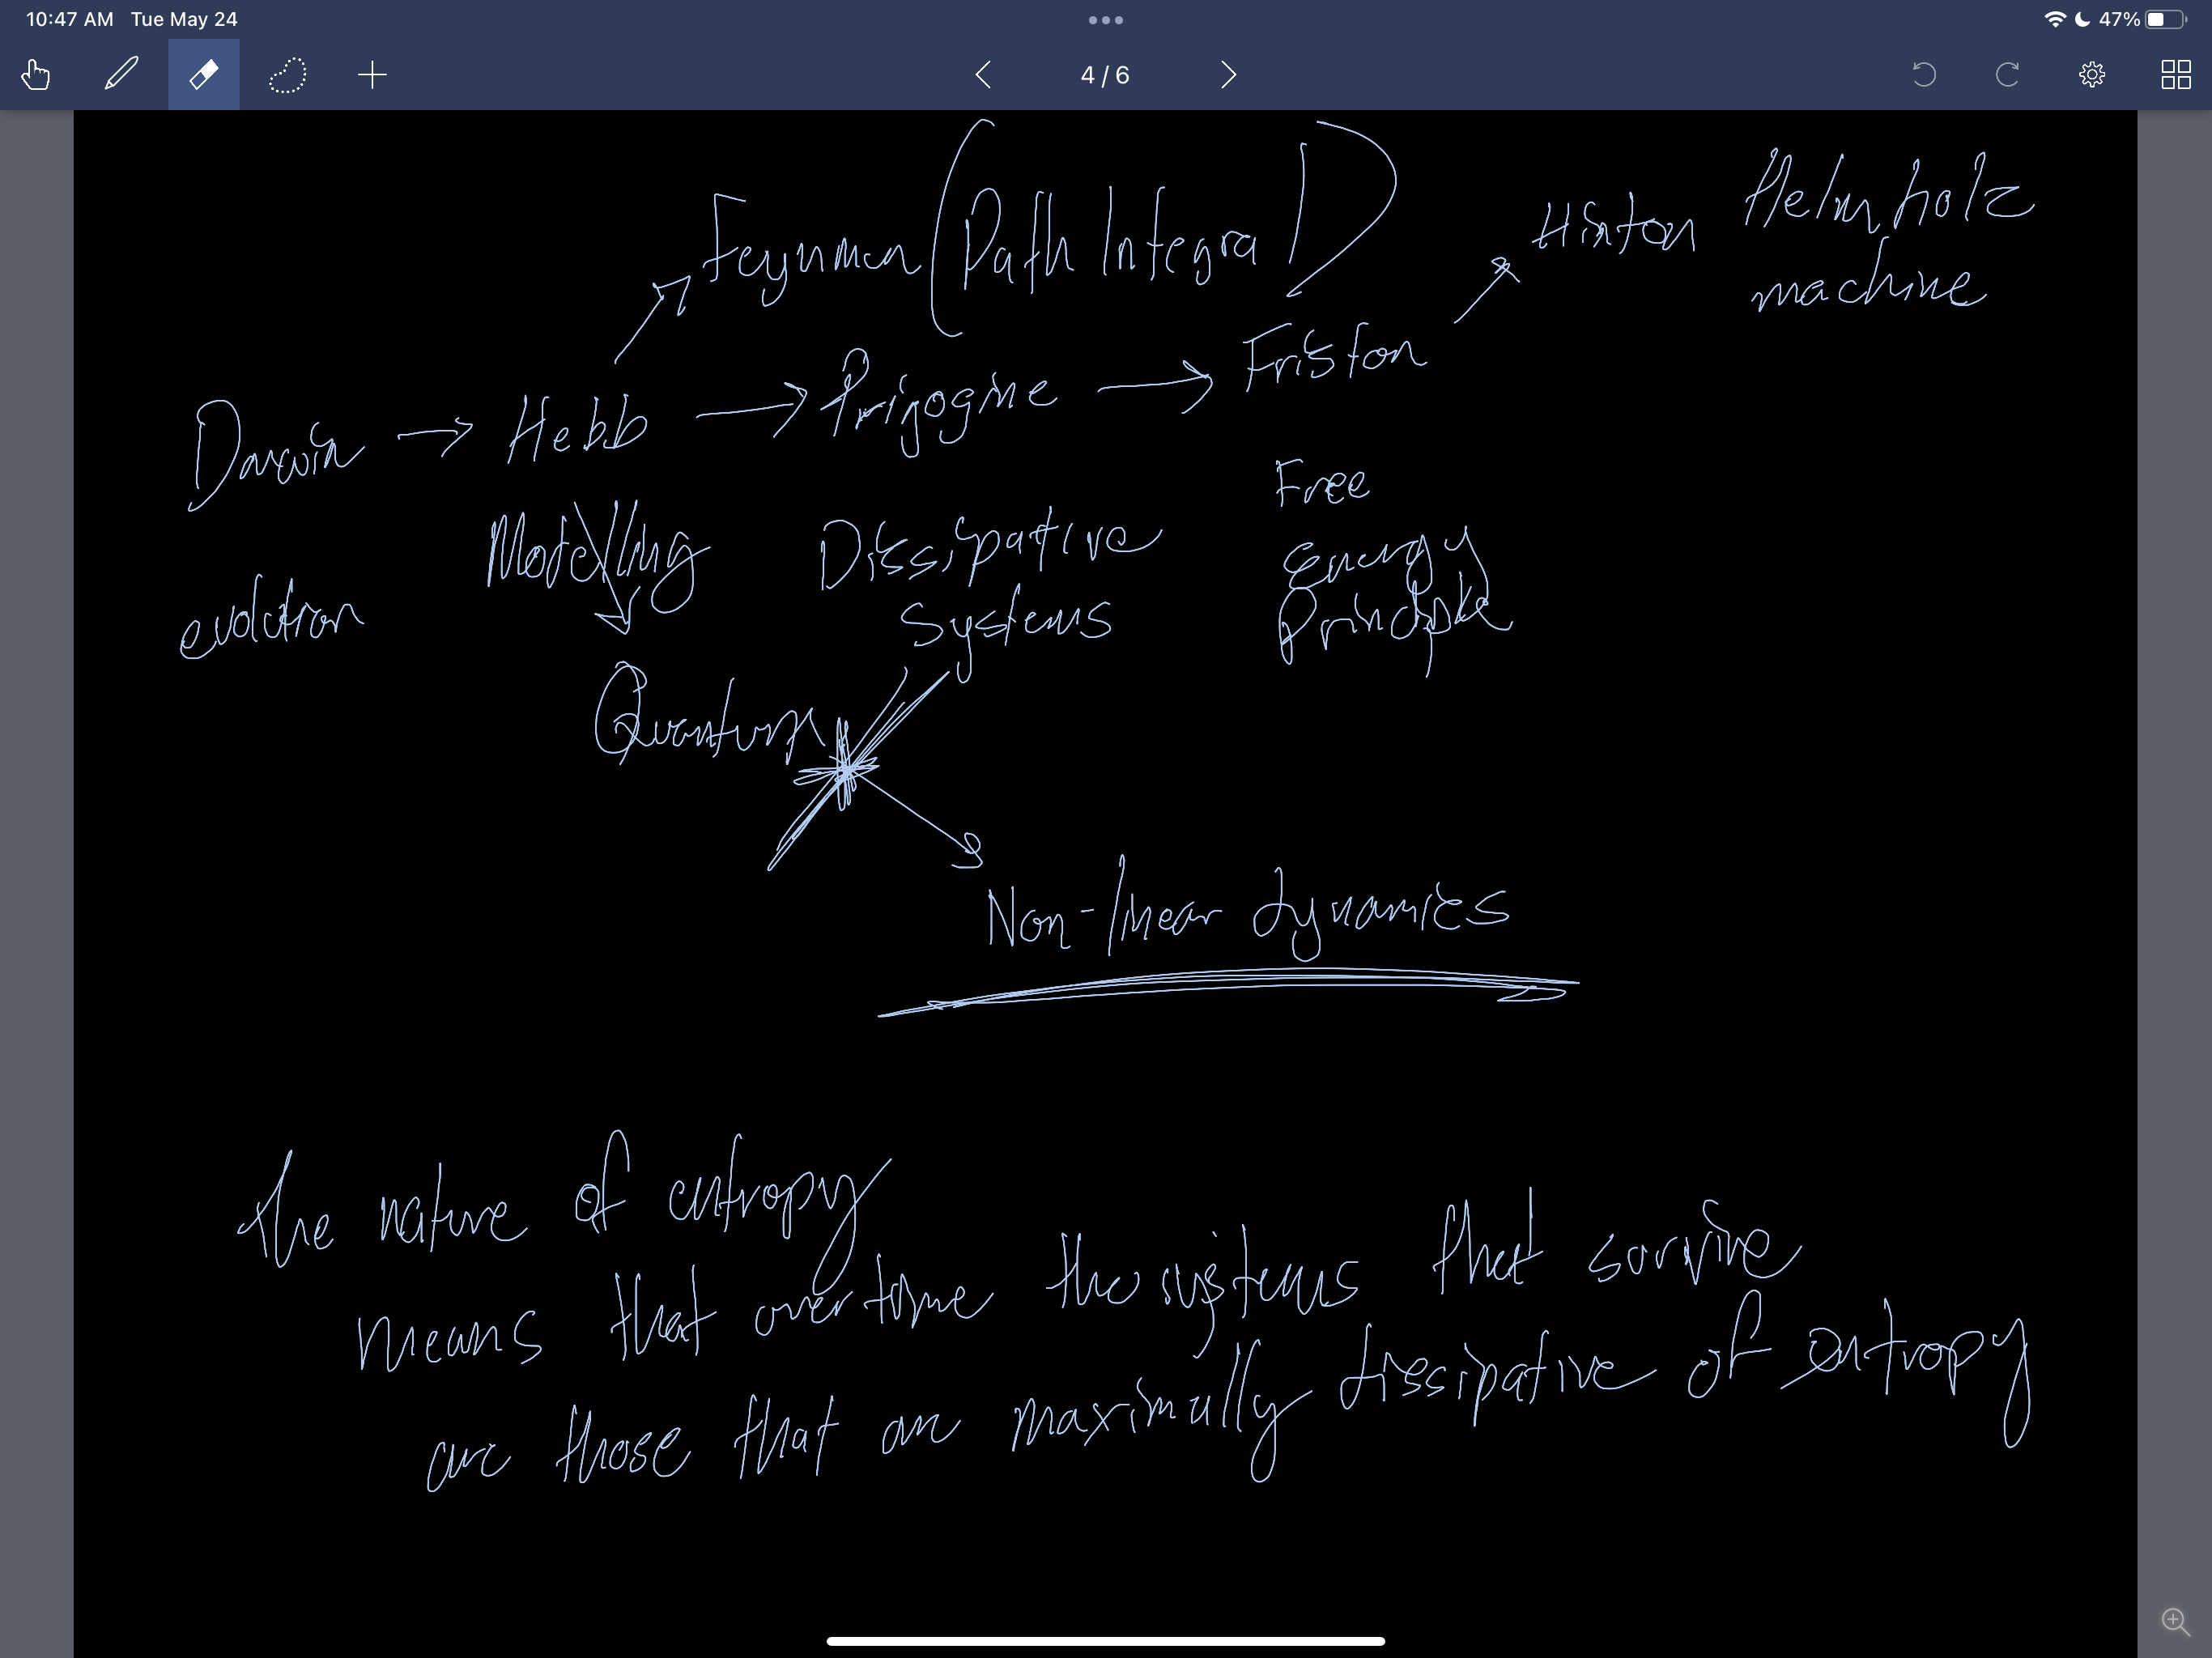 10:47 AM Tue May 24
47%
4 / 6
Feynman (Path Integral)
Hinton Helmholz
machine
Darwin → Hebb → Prigogine → Friston
evolution
Modelling
Dissipative
Systems
Free
energy
Principle
Quantum
Non-linear dynamics
the nature of entropy
means that overtime the systems that survive
are those that are maximally dissipative of entropy